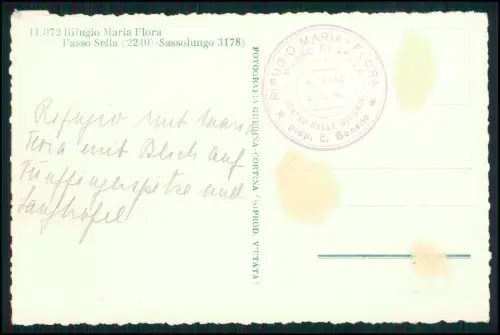 11.072 Rifugio Maria Flora
Passo Sella (2240)-Sassolungo 3178)
RIFUGIO MARIA - FLORA
PASSO SELLA
m. 2240
prop. E. Bonello
FOTOGRAFIA GHEDINA-CORTINA (RIPROD. VIETATA)
Refugio mit Maria
Flora mit Blick auf
Fünffingerspitze und
Langkofel